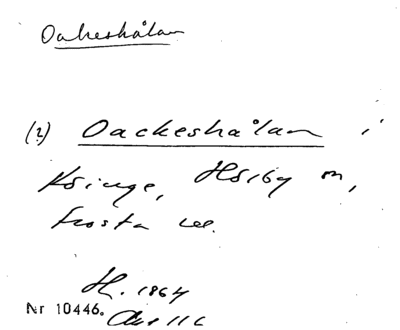 Oakeshålan
(2) Oackeshålan i
Ksinge, Hörby sn,
Frosta
H. 1864
Nr 10446. 116